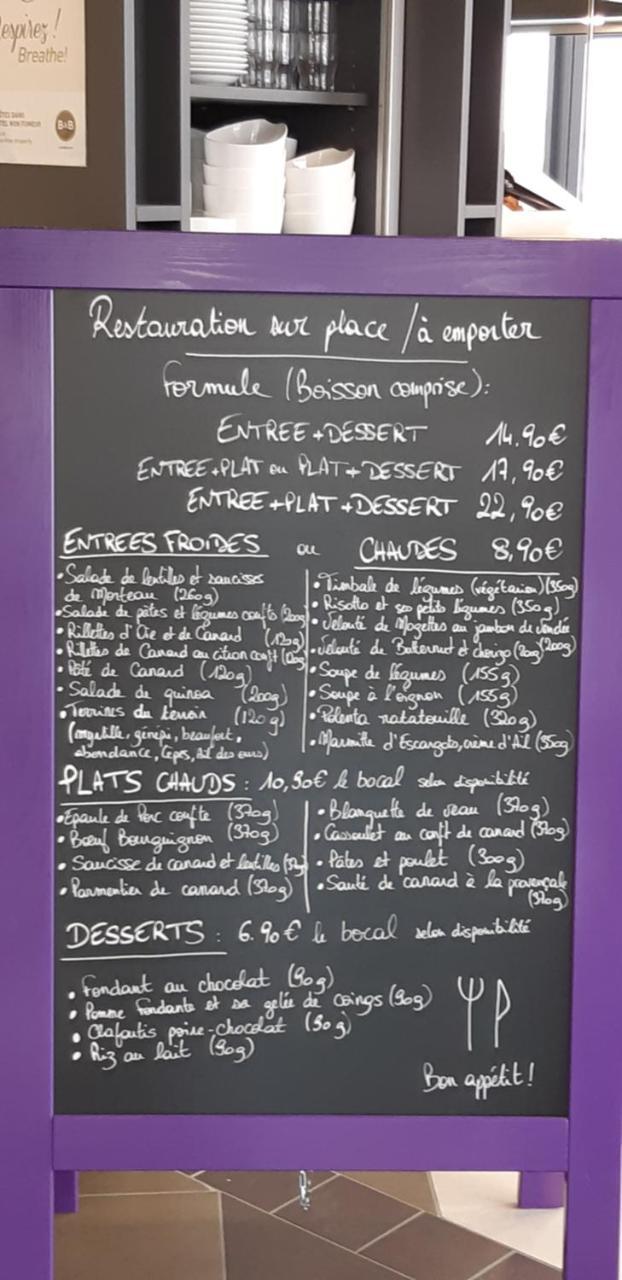 Respirez!
Breathe!
B&B
Restauration sur place / à emporter
Formule (Boisson comprise):
ENTREE+DESSERT 14,90€
ENTREE+PLAT ou PLAT+DESSERT 17,90€
ENTREE+PLAT+DESSERT 22,90€
ENTREES FROIDES ou CHAUDES 8,90€
• Salade de lentilles et saucisses
de Morteau (260g)
• Salade de pâtes et légumes confits (200g)
• Rillettes d'Oie et de Canard (120g)
• Rillettes de Canard au citron confit (120g)
• Pâté de Canard (120g)
• Salade de quinoa (200g)
• Terrines du terroir (120g)
(myrtille, génépi, beaufort,
abondance, Cèpes, Ail des ours)
• Timbale de légumes (végétarien) (350g)
• Risotto et ses petits légumes (350g)
• Velouté de Mogettes au jambon de vendée
(200g)
• Velouté de Butternut et chorizo (200g)
• Soupe de légumes (155g)
• Soupe à l'oignon (155g)
• Polenta ratatouille (320g)
• Marmite d'Escargots, crème d'Ail (350g)
PLATS CHAUDS : 10,90€ le bocal selon disponibilité
• Epaule de Porc confite (370g)
• Bœuf Bourguignon (370g)
• Saucisse de canard et lentilles
• Parmentier de canard (370g)
• Blanquette de veau (370g)
• Cassoulet au confit de canard (370g)
• Pâtes et poulet (300g)
• Sauté de canard à la provençale
(370g)
DESSERTS : 6.90€ le bocal selon disponibilité
• Fondant au chocolat (90g)
• Pomme fondante et sa gelée de coings (90g)
• Clafoutis poire-chocolat (90g)
• Riz au lait (90g)
Bon appétit!